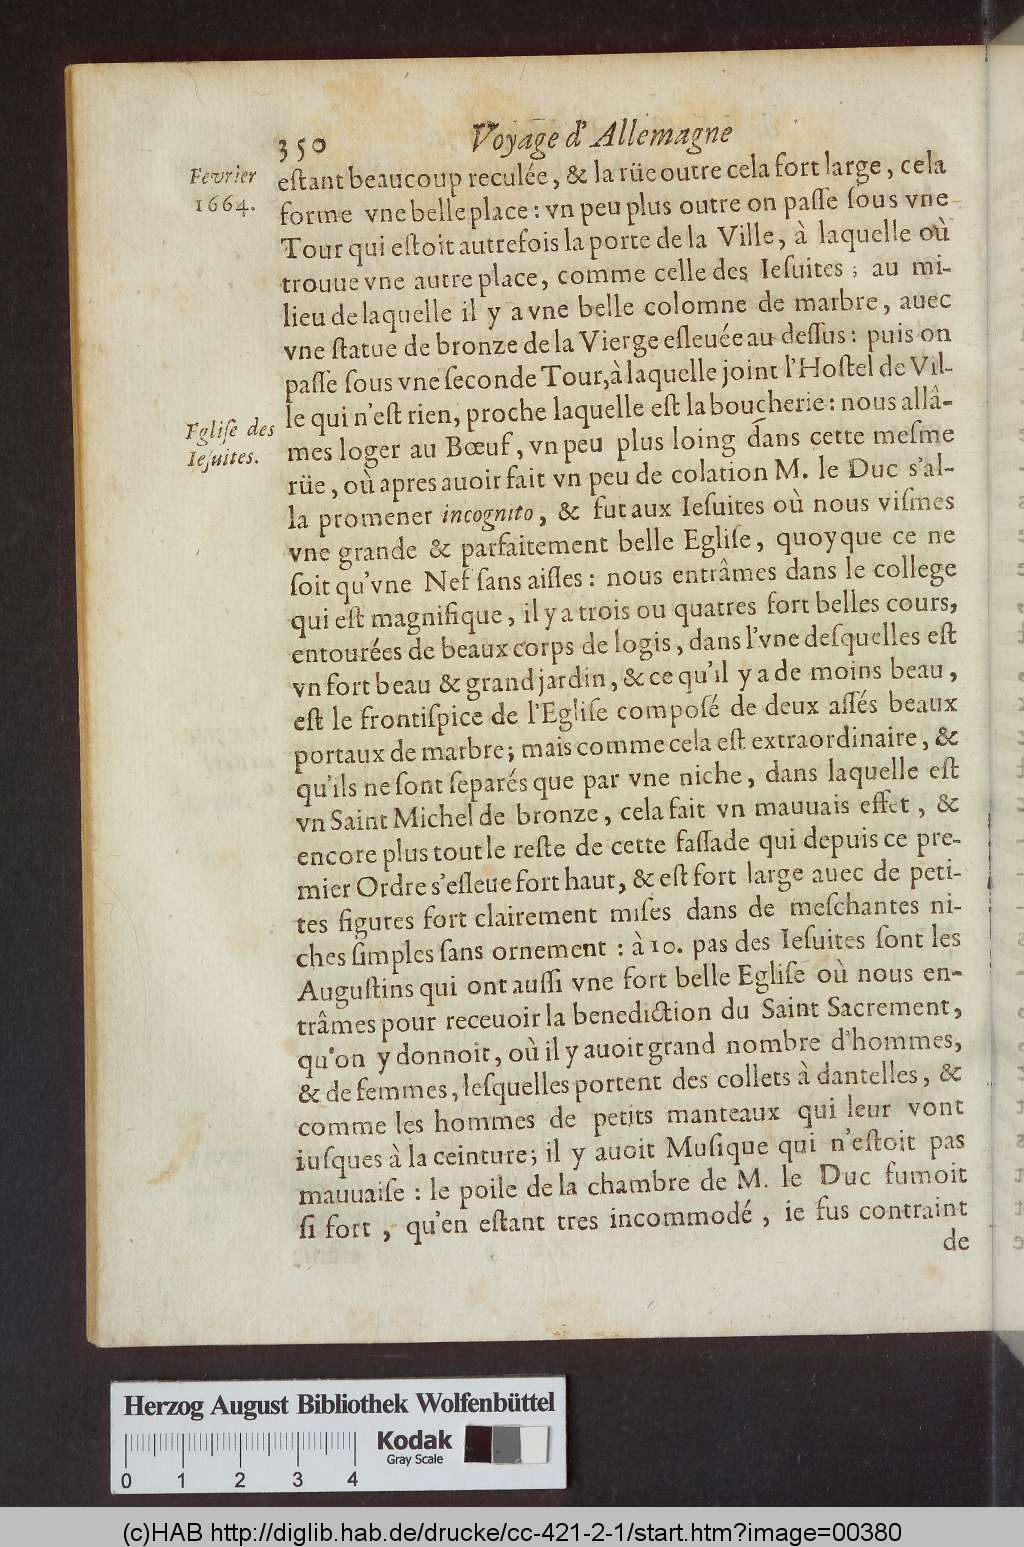 350 Voyage d'Allemagne
Fevrier
1664.
eſtant beaucoup reculée, & la rüe outre cela fort large, cela
forme vne belle place : vn peu plus outre on paſſe ſous vne
Tour qui eſtoit autrefois la porte de la Ville, à laquelle où
trouue vne autre place, comme celle des Ieſuites ; au mi-
lieu de laquelle il y a vne belle colomne de marbre, auec
vne ſtatue de bronze de la Vierge eſleuée au deſſus : puis on
paſſe ſous vne ſeconde Tour, à laquelle joint l'Hoſtel de Vil-
le qui n'eſt rien, proche laquelle eſt la boucherie : nous allâ-
Egliſe des
Ieſuites.
mes loger au Bœuf, vn peu plus loing dans cette meſme
rüe, où apres auoir fait vn peu de colation M. le Duc s'al-
la promener incognito, & fut aux Ieſuites où nous viſmes
vne grande & parfaitement belle Egliſe, quoyque ce ne
ſoit qu'vne Nef ſans aiſles : nous entrâmes dans le college
qui eſt magnifique, il y a trois ou quatres fort belles cours,
entourées de beaux corps de logis, dans l'vne deſquelles eſt
vn fort beau & grand jardin, & ce qu'il y a de moins beau,
eſt le frontiſpice de l'Egliſe compoſé de deux aſſés beaux
portaux de marbre; mais comme cela eſt extraordinaire, &
qu'ils ne ſont ſeparés que par vne niche, dans laquelle eſt
vn Saint Michel de bronze, cela fait vn mauuais effet, &
encore plus tout le reſte de cette faſſade qui depuis ce pre-
mier Ordre s'eſleue fort haut, & eſt fort large auec de peti-
tes figures fort clairement miſes dans de meſchantes ni-
ches ſimples ſans ornement : à 10. pas des Ieſuites ſont les
Auguſtins qui ont auſſi vne fort belle Egliſe où nous en-
trâmes pour receuoir la benediction du Saint Sacrement,
qu'on y donnoit, où il y auoit grand nombre d'hommes,
& de femmes, leſquelles portent des collets à dantelles, &
comme les hommes de petits manteaux qui leur vont
iuſques à la ceinture; il y auoit Muſique qui n'eſtoit pas
mauuaiſe : le poile de la chambre de M. le Duc fumoit
ſi fort, qu'en eſtant tres incommodé, ie fus contraint
de
Herzog August Bibliothek Wolfenbüttel
Kodak
Gray Scale
0 1 2 3 4
(c)HAB http://diglib.hab.de/drucke/cc-421-2-1/start.htm?image=00380